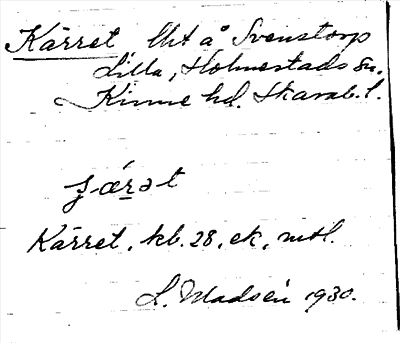 Kärret lht å Svenstorp
Lilla, Holmestads sn.
Kinne hd. Skarab. l.
ɟæ̀rət
Kärret, kb. 28, ek, mtl.
L. Madsén 1930.